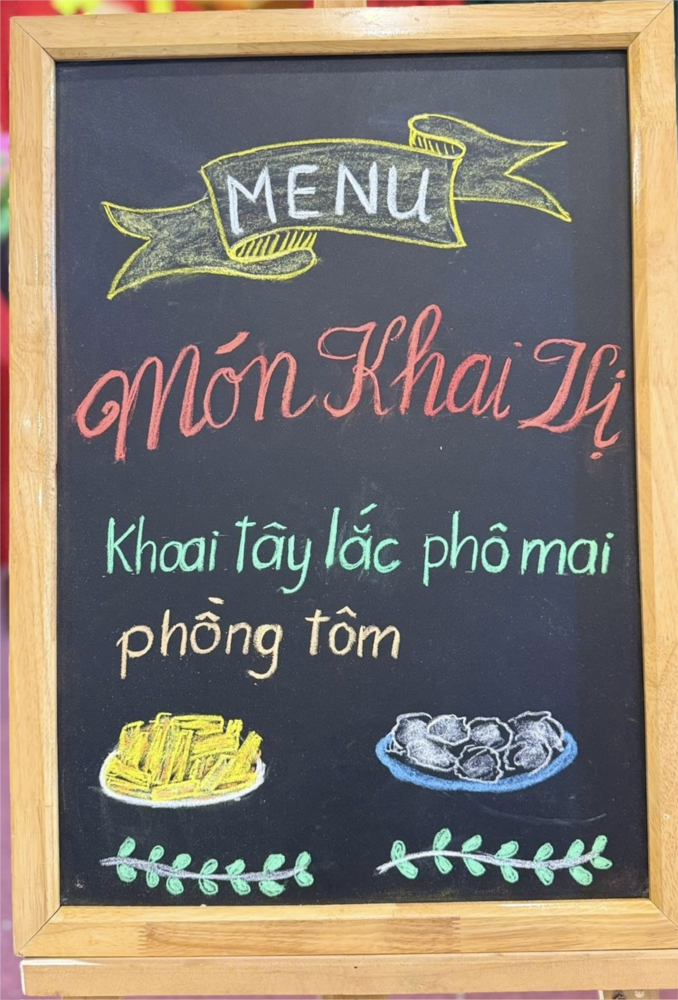 MENU
Món Khai Vị
Khoai tây lắc phô mai
phồng tôm